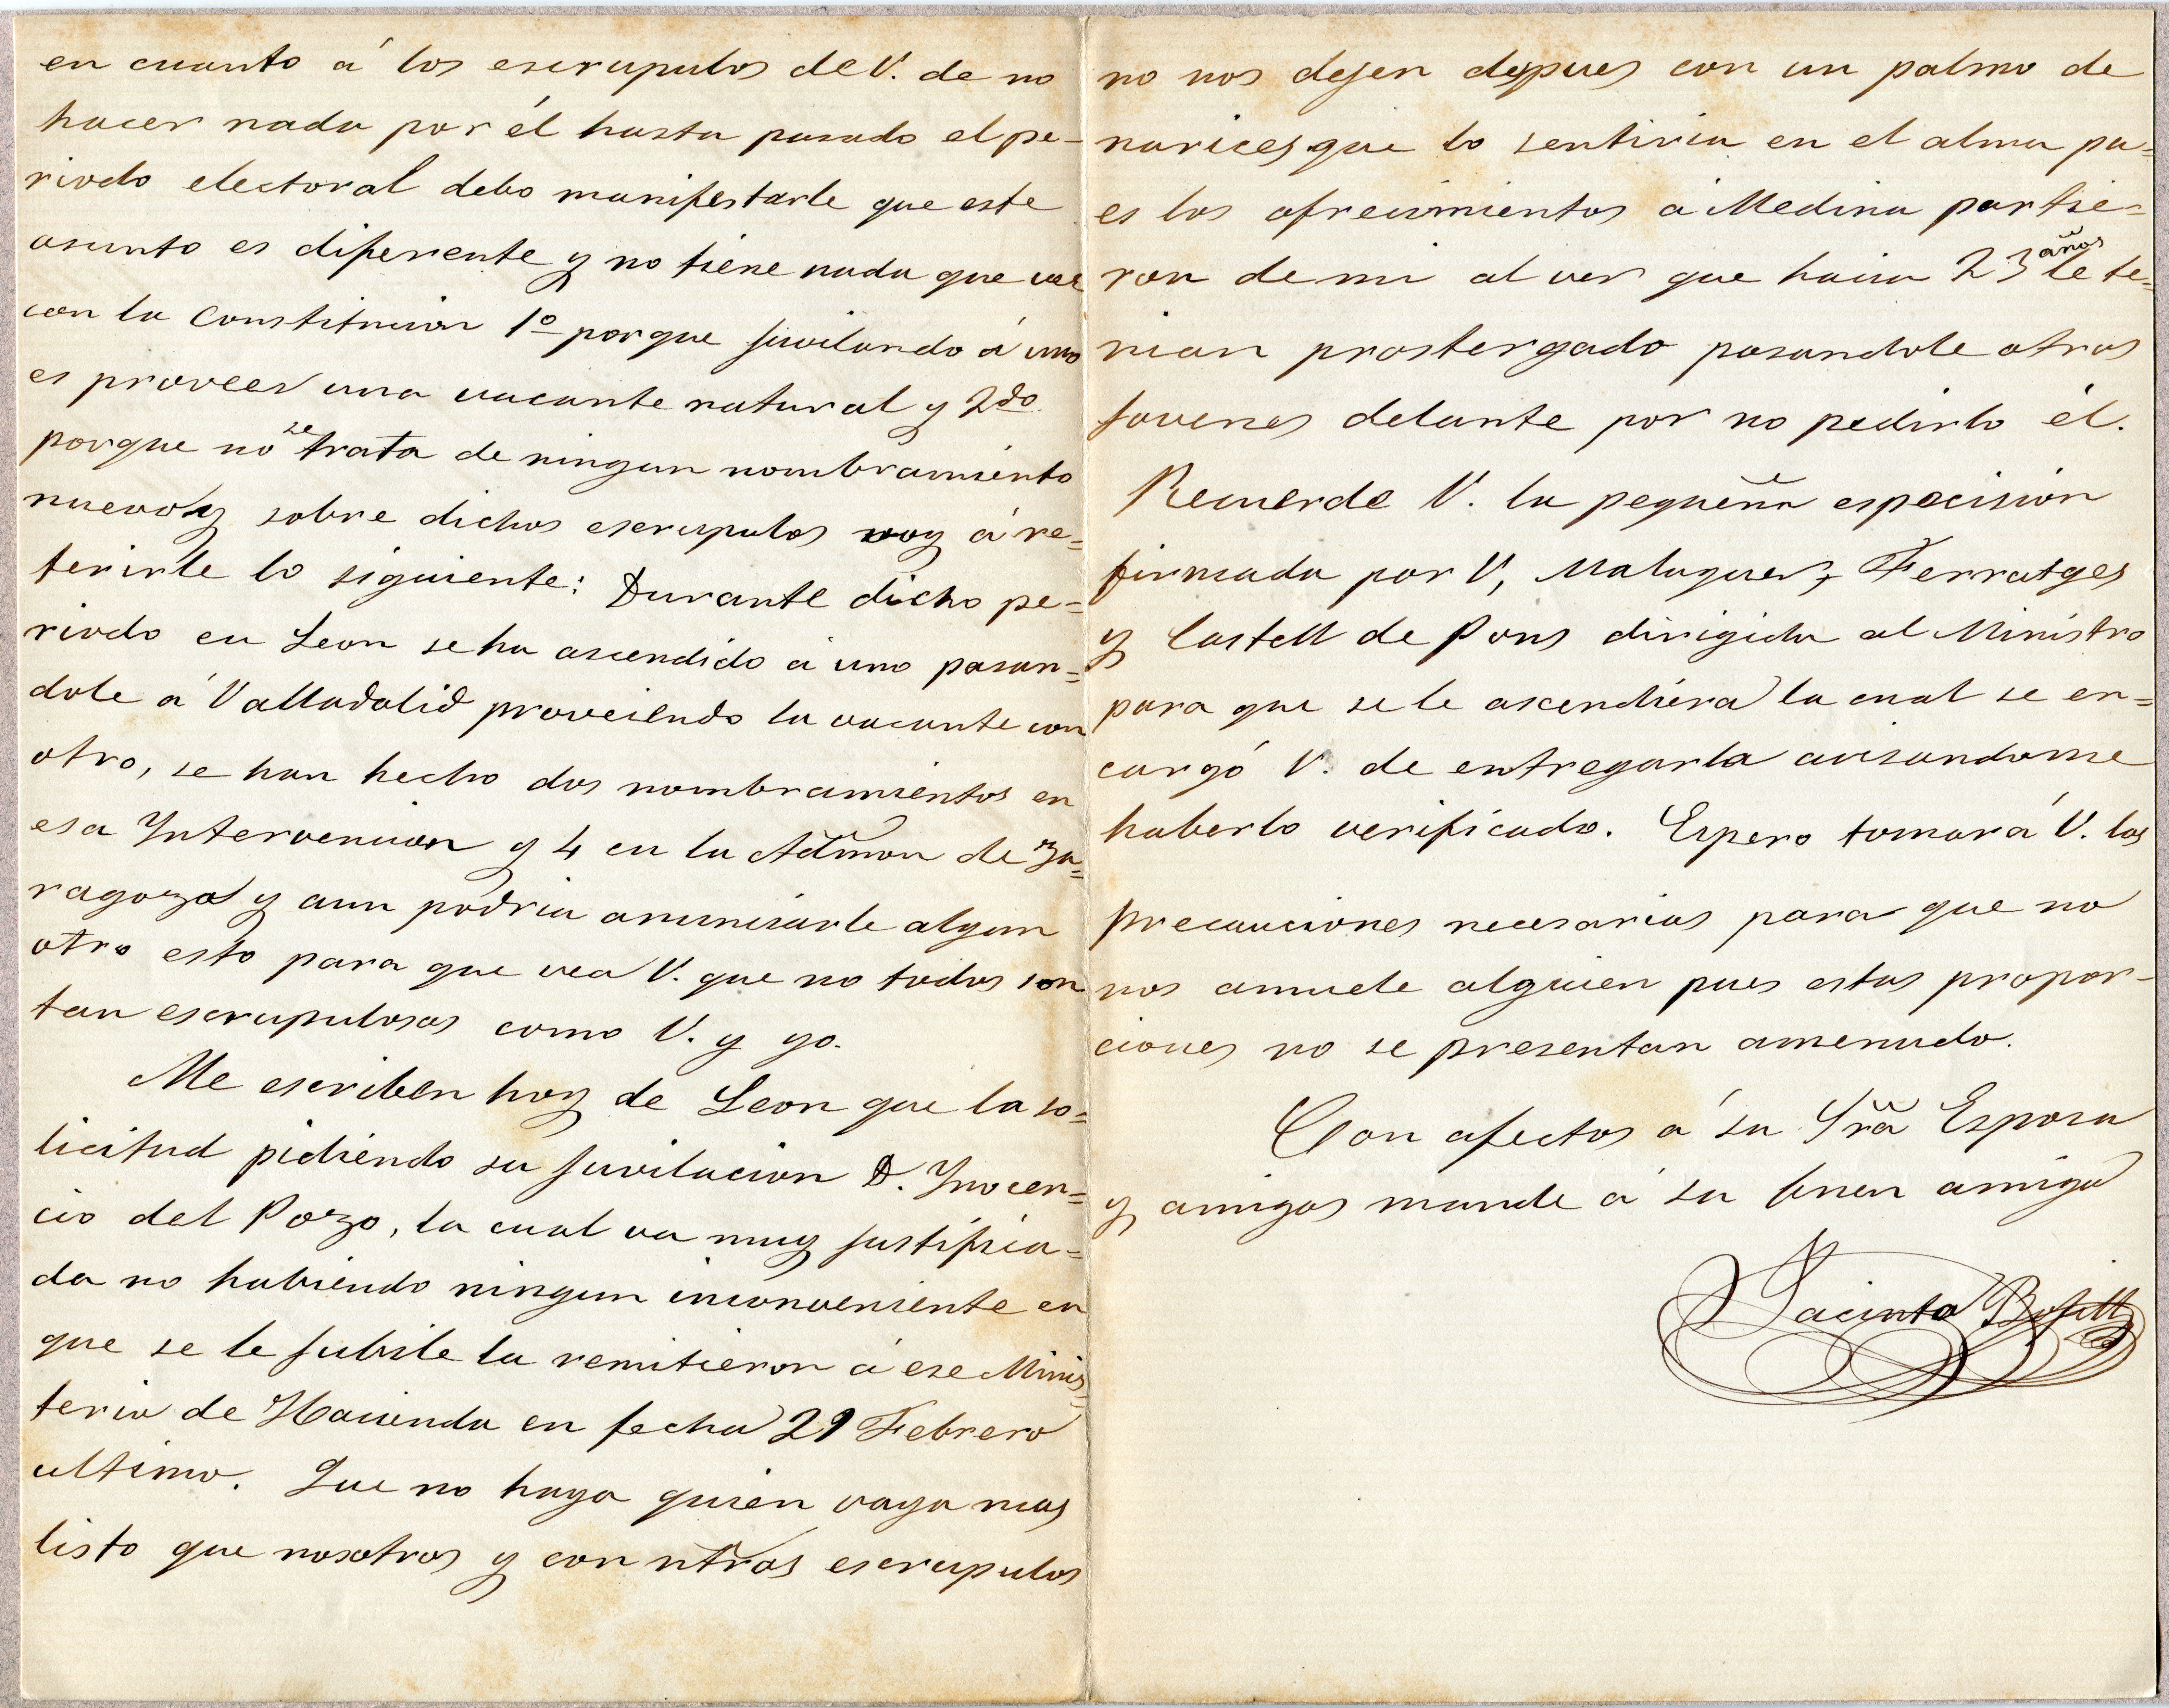 en cuanto á los escrupulos de V. de no
hacer nada por él hasta pasado el pe-
riodo electoral debo manifestarle que este
asunto es diferente y no tiene nada que ver
con la Constitucion 1º porque juvilando á uno
es proveer una vacante natural y 2do
porque no se trata de ningun nombramiento
nuevo y sobre dichos escrupulos voy á re=
ferirle lo siguiente: Durante dicho pe=
riodo en Leon se ha ascendido á uno pasan=
dole á Valladolid proveiendo la vacante con
otro, se han hecho dos nombramientos en
esa Yntervencion y 4 en la Admon de Za=
ragoza y aun podria anunciarle algun
otro esto para que vea V. que no todos son
tan escrupulosos como V. y yo.
Me escriben hoy de Leon que la so=
licitud pidiendo su juvilacion D. Ynocen=
cio del Pozo, la cual va muy justifica=
da no habiendo ningun inconveniente en
que se le jubile la remitieron á ese Minis=
terio de Hacienda en fecha 29 Febrero
ultimo. Que no haya quien vaya mas
listo que nosotros y con ntros escrupulos
no nos dejen despues con un palmo de
narices que lo sentiria en el alma pu=
es los ofrecimientos á Medina partie=
ron de mi al ver que hacia 23 años le te=
nian prostergado pasandole otros
jovenes delante por no pedirlo él.
Recuerde V. la pequeña esposicion
firmada por V, Maluquer, Ferratges
y Castell de Pons dirigida al Ministro
para que se le ascendiera la cual se en=
cargó V. de entregarla avisandome
haberlo verificado. Espero tomará V. las
precauciones necesarias para que no
nos amuele alguien pues estas propor-
ciones no se presentan amenudo.
Con afectos á su Sra Esposa
y amigos mande á su buen amigo
Jacinto Bofill